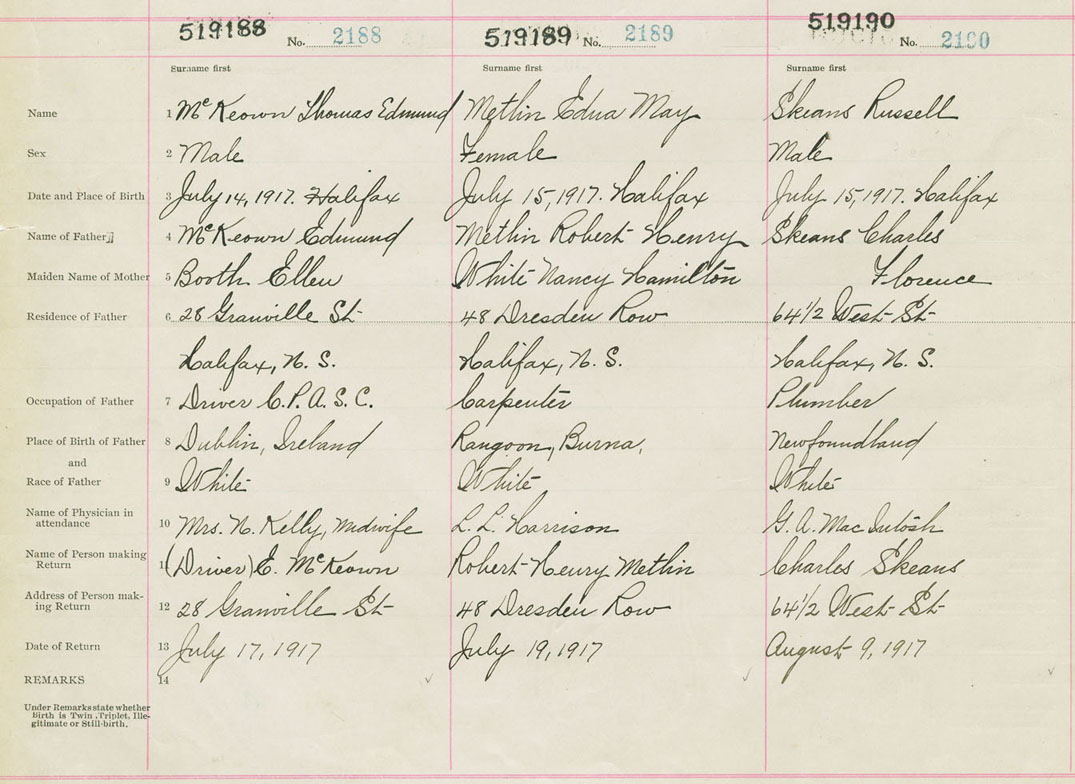 519188 No. 2188 519189 No. 2189 519190 No. 2190
Surname first Surname first Surname first
Name 1 McKeown Thomas Edmund Metlin Edna May Skeans Russell
Sex 2 Male Female Male
Date and Place of Birth 3 July 14, 1917. Halifax July 15, 1917. Halifax July 15, 1917. Halifax
Name of Father 4 McKeown Edmund Metlin Robert Henry Skeans Charles
Maiden Name of Mother 5 Booth Ellen White Nancy Hamilton Florence
Residence of Father 6 28 Granville St 48 Dresden Row 64 1/2 West St
Halifax, N. S. Halifax, N. S. Halifax, N. S.
Occupation of Father 7 Driver C. P. A. S. C. Carpenter Plumber
Place of Birth of Father 8 Dublin, Ireland Rangoon, Burna, Newfoundland
and
Race of Father 9 White White White
Name of Physician in
attendance 10 Mrs. N. Kelly, midwife L. L. Harrison G. A. MacIntosh
Name of Person making
Return 11 (Driver) E. McKeown Robert Henry Metlin Charles Skeans
Address of Person mak-
ing Return 12 28 Granville St 48 Dresden Row 64 1/2 West St
Date of Return 13 July 17, 1917 July 19, 1917 August 9, 1917
REMARKS 14
Under Remarks state whether
Birth is Twin, Triplet, Ille-
gitimate or Still-birth.